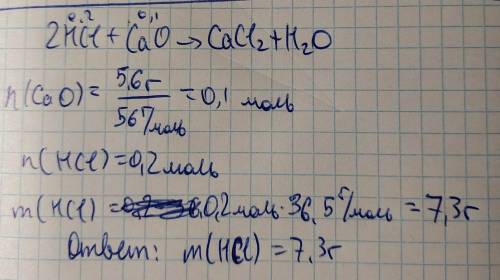 0,2 0,1
2HCl + CaO → CaCl2 + H2O
n(CaO) = 5,6г / 56 г/моль = 0,1 моль
n(HCl) = 0,2 моль
m(HCl) = 0,2 моль · 36,5 г/моль = 7,3г
Ответ: m(HCl) = 7,3г